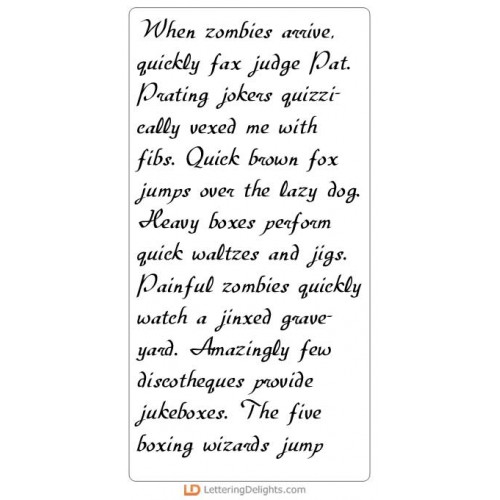 When zombies arrive,
quickly fax judge Pat.
Prating jokers quizzi-
cally vexed me with
fibs. Quick brown fox
jumps over the lazy dog.
Heavy boxes perform
quick waltzes and jigs.
Painful zombies quickly
watch a jinxed grave-
yard. Amazingly few
discotheques provide
jukeboxes. The five
boxing wizards jump
LD LetteringDelights.com